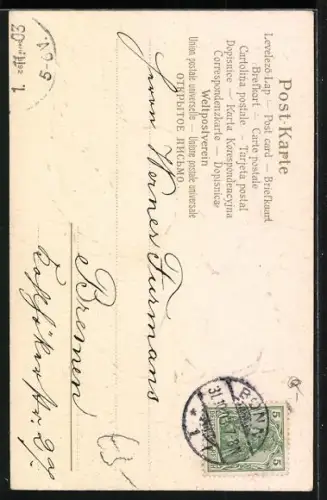 Post-Karte
Levelező-Lap — Post card — Briefkaart
Brefkort — Carte postale
Cartolina postale — Tarjeta postal
Dopisnice — Karta Korespondencyjna
Correspondenzkarte — Dopisnica
Weltpostverein
Union postale universelle — Unione postale universale
ОТКРЫТОЕ ПИСЬМО
Herrn Werner Furmans
Bremen
5
5